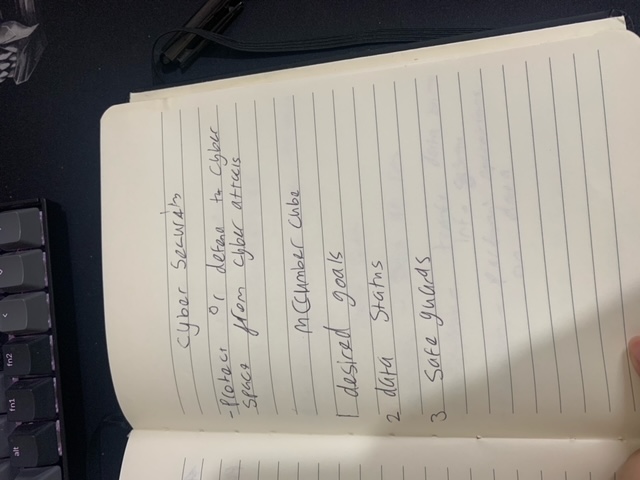 alt fn1 fn2 <
Cyber Security
- Protect or defend to Cyber
Space from Cyber attacks
McCumber Cube
1 desired goals
2 data Status
3 Safe guards